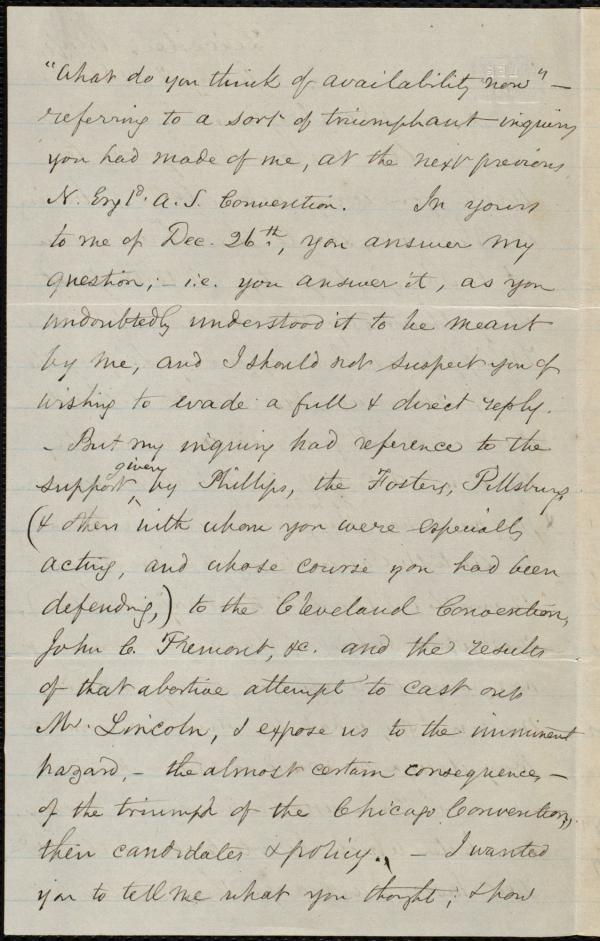 "What do you think of availability now" —
referring to a sort of triumphant inquiry
you had made of me, at the next previous
N. Engld. A. S. Convention. In yours
to me of Dec. 26th, you answer my
question; – i.e. you answer it, as you
undoubtedly understood it to be meant
by me, and I should not suspect you of
wishing to evade a full & direct reply.
– But my inquiry had reference to the
support given by Phillips, the Fosters, Pillsbury
(& others with whom you were especially
acting, and whose course you had been
defending,) to the Cleveland Convention,
John C. Fremont, &c. and the results
of that abortive attempt to cast out
Mr. Lincoln, & expose us to the imminent
hazard, – the almost certain consequence, –
of the triumph of the Chicago Convention,
their candidates & policy. – I wanted
you to tell me what you thought; & how